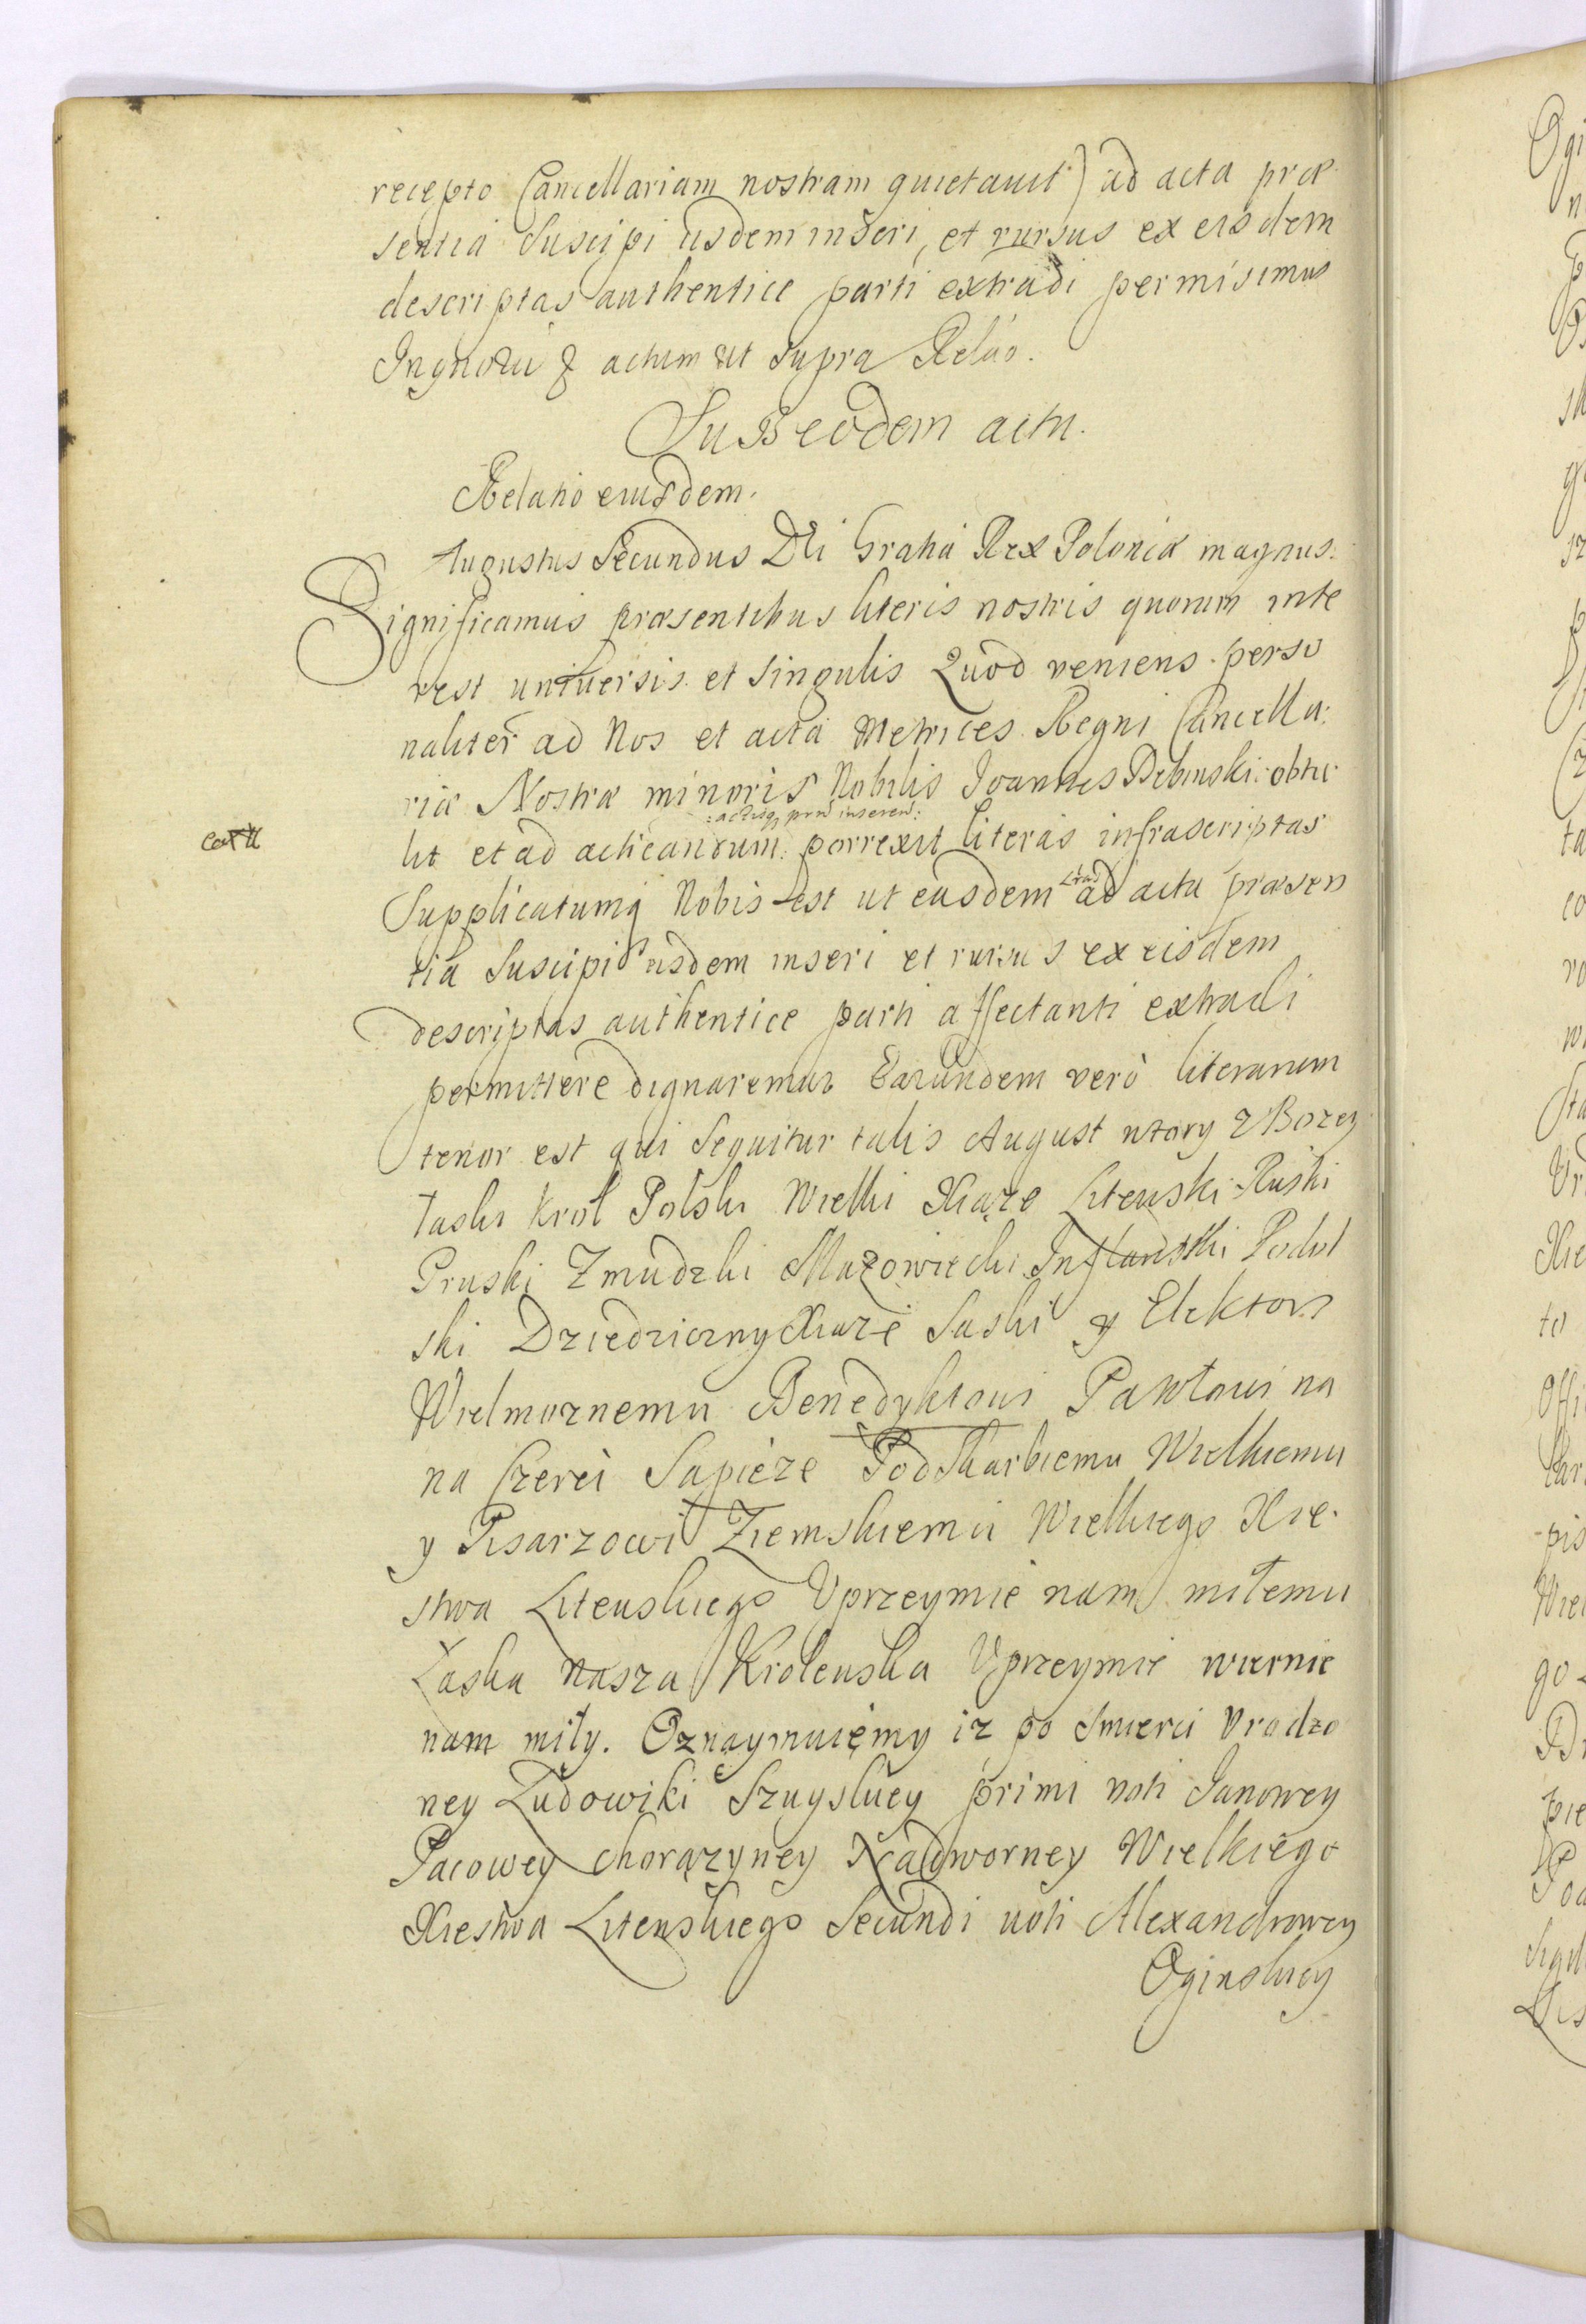 recepto Cancellariam nostram quietavit) ad acta præ
sentia Suscipi iisdem inseri, et rursus ex eisdem
descriptas authentice parti extradi permisimus
In quorum & actum ut supra Relāo.
Sub eodem actu.
Relatio eiusdem.
Augustus Secundus Dei Gratia Rex Poloniæ magnus.
Significamus præsentibus literis nostris quorum inte
rest universis et singulis Quod veniens perso
naliter ad Nos et acta Metrices Regni Cancella:
riæ Nostræ minoris Nobilis Joannes Debinski obtu
:actisq prnt inseren:
lit et ad acticandum porrexit literas infrascriptas
Supplicatumq Nobis est ut easdem Ltras ad acta præsen
tia Suscipi iisdem inseri et rursus ex eisdem
descriptas authentice parti affectanti extradi
permittere dignaremur Earundem verò literarum
tenor est qui sequitur talis August wtory z Bozey
łaski Krol Polski Wielki Xiąze Litewski Ruski
Pruski Zmudzki Mazowiecki Inflantski Podol
ski Dziedziczny Xiaze Saski y Elektor
Wielmoznemu Benedyktowi Pawłowi na
na Czerei Sapieze Podskarbiemu Wielkiemu
y Pisarzowi Ziemskiemu Wielkiego Xie
stwa Litewskiego Uprzeymie nam miłemu
Łaska Nasza Krolewska Uprzeymie wiernie
nam miły. Oznaymuięmy iz po smierci Urodzo
ney Ludowiki Szuyskiey primi voti Janowey
Pacowey chorązyney Nadworney Wielkiego
Xiestwa Litewskiego Secundi voti Alexandrowey
Oginskiey